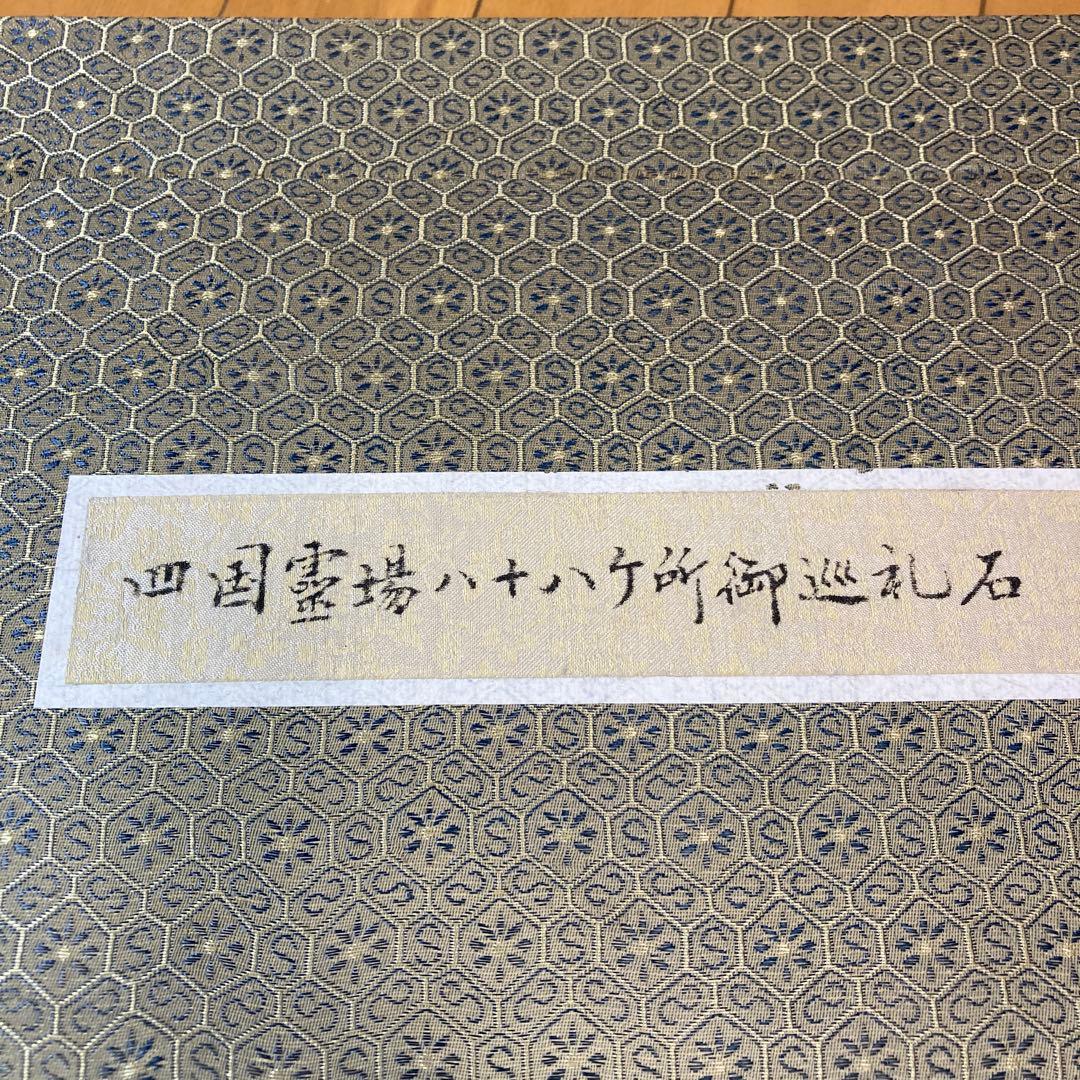 四国霊場八十八ケ所御巡礼石